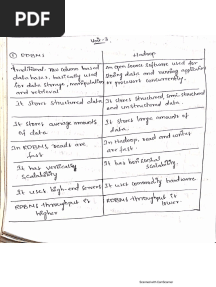 PDF
Unit-3
① RDBMS
Hadoop
Traditional row column based
databases, basically used
for data storage, manipulation
and retrieval
An open source software used for
storing data and running applications
or processes concurrently.
It stores structured data
It stores structured, semi-structured
and unstructured data
It stores average amounts
of data
It stores large amounts of
data.
In RDBMS reads are
fast
In Hadoop, read and writes
are fast.
It has vertically
scalability
It has horizontal
scalability.
It uses high-end servers
It uses commodity hardware
RDBMS throughput is
higher
RDBMS throughput is
lower.